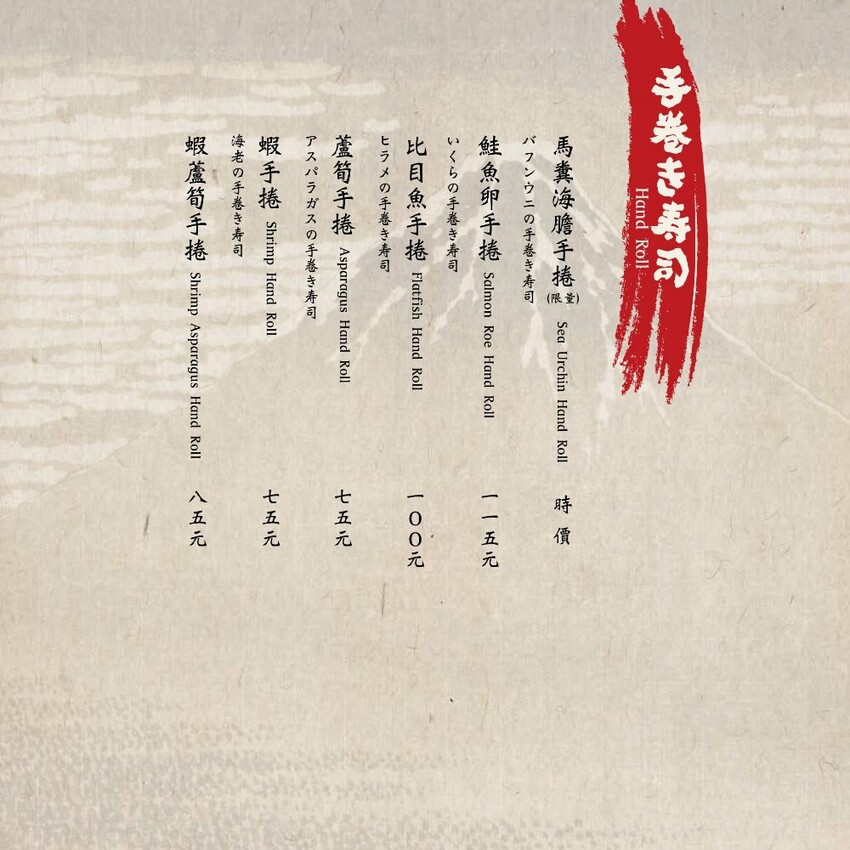 手巻き寿司
Hand Roll
馬糞海膽手捲(限量) Sea Urchin Hand Roll 時價
バフンウニの手巻き寿司
鮭魚卵手捲 Salmon Roe Hand Roll 一一五元
いくらの手巻き寿司
比目魚手捲 Flatfish Hand Roll 一００元
ヒラメの手巻き寿司
蘆筍手捲 Asparagus Hand Roll 七五元
アスパラガスの手巻き寿司
蝦手捲 Shrimp Hand Roll 七五元
海老の手巻き寿司
蝦蘆筍手捲 Shrimp Asparagus Hand Roll 八五元